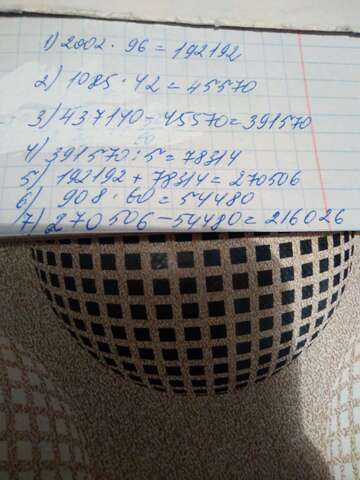 1) 2002 · 96 = 192192
2) 1085 · 42 = 45570
3) 437140 - 45570 = 391570
4) 391570 : 5 = 78314
5) 192192 + 78314 = 270506
6) 908 · 60 = 54480
7) 270506 - 54480 = 216026